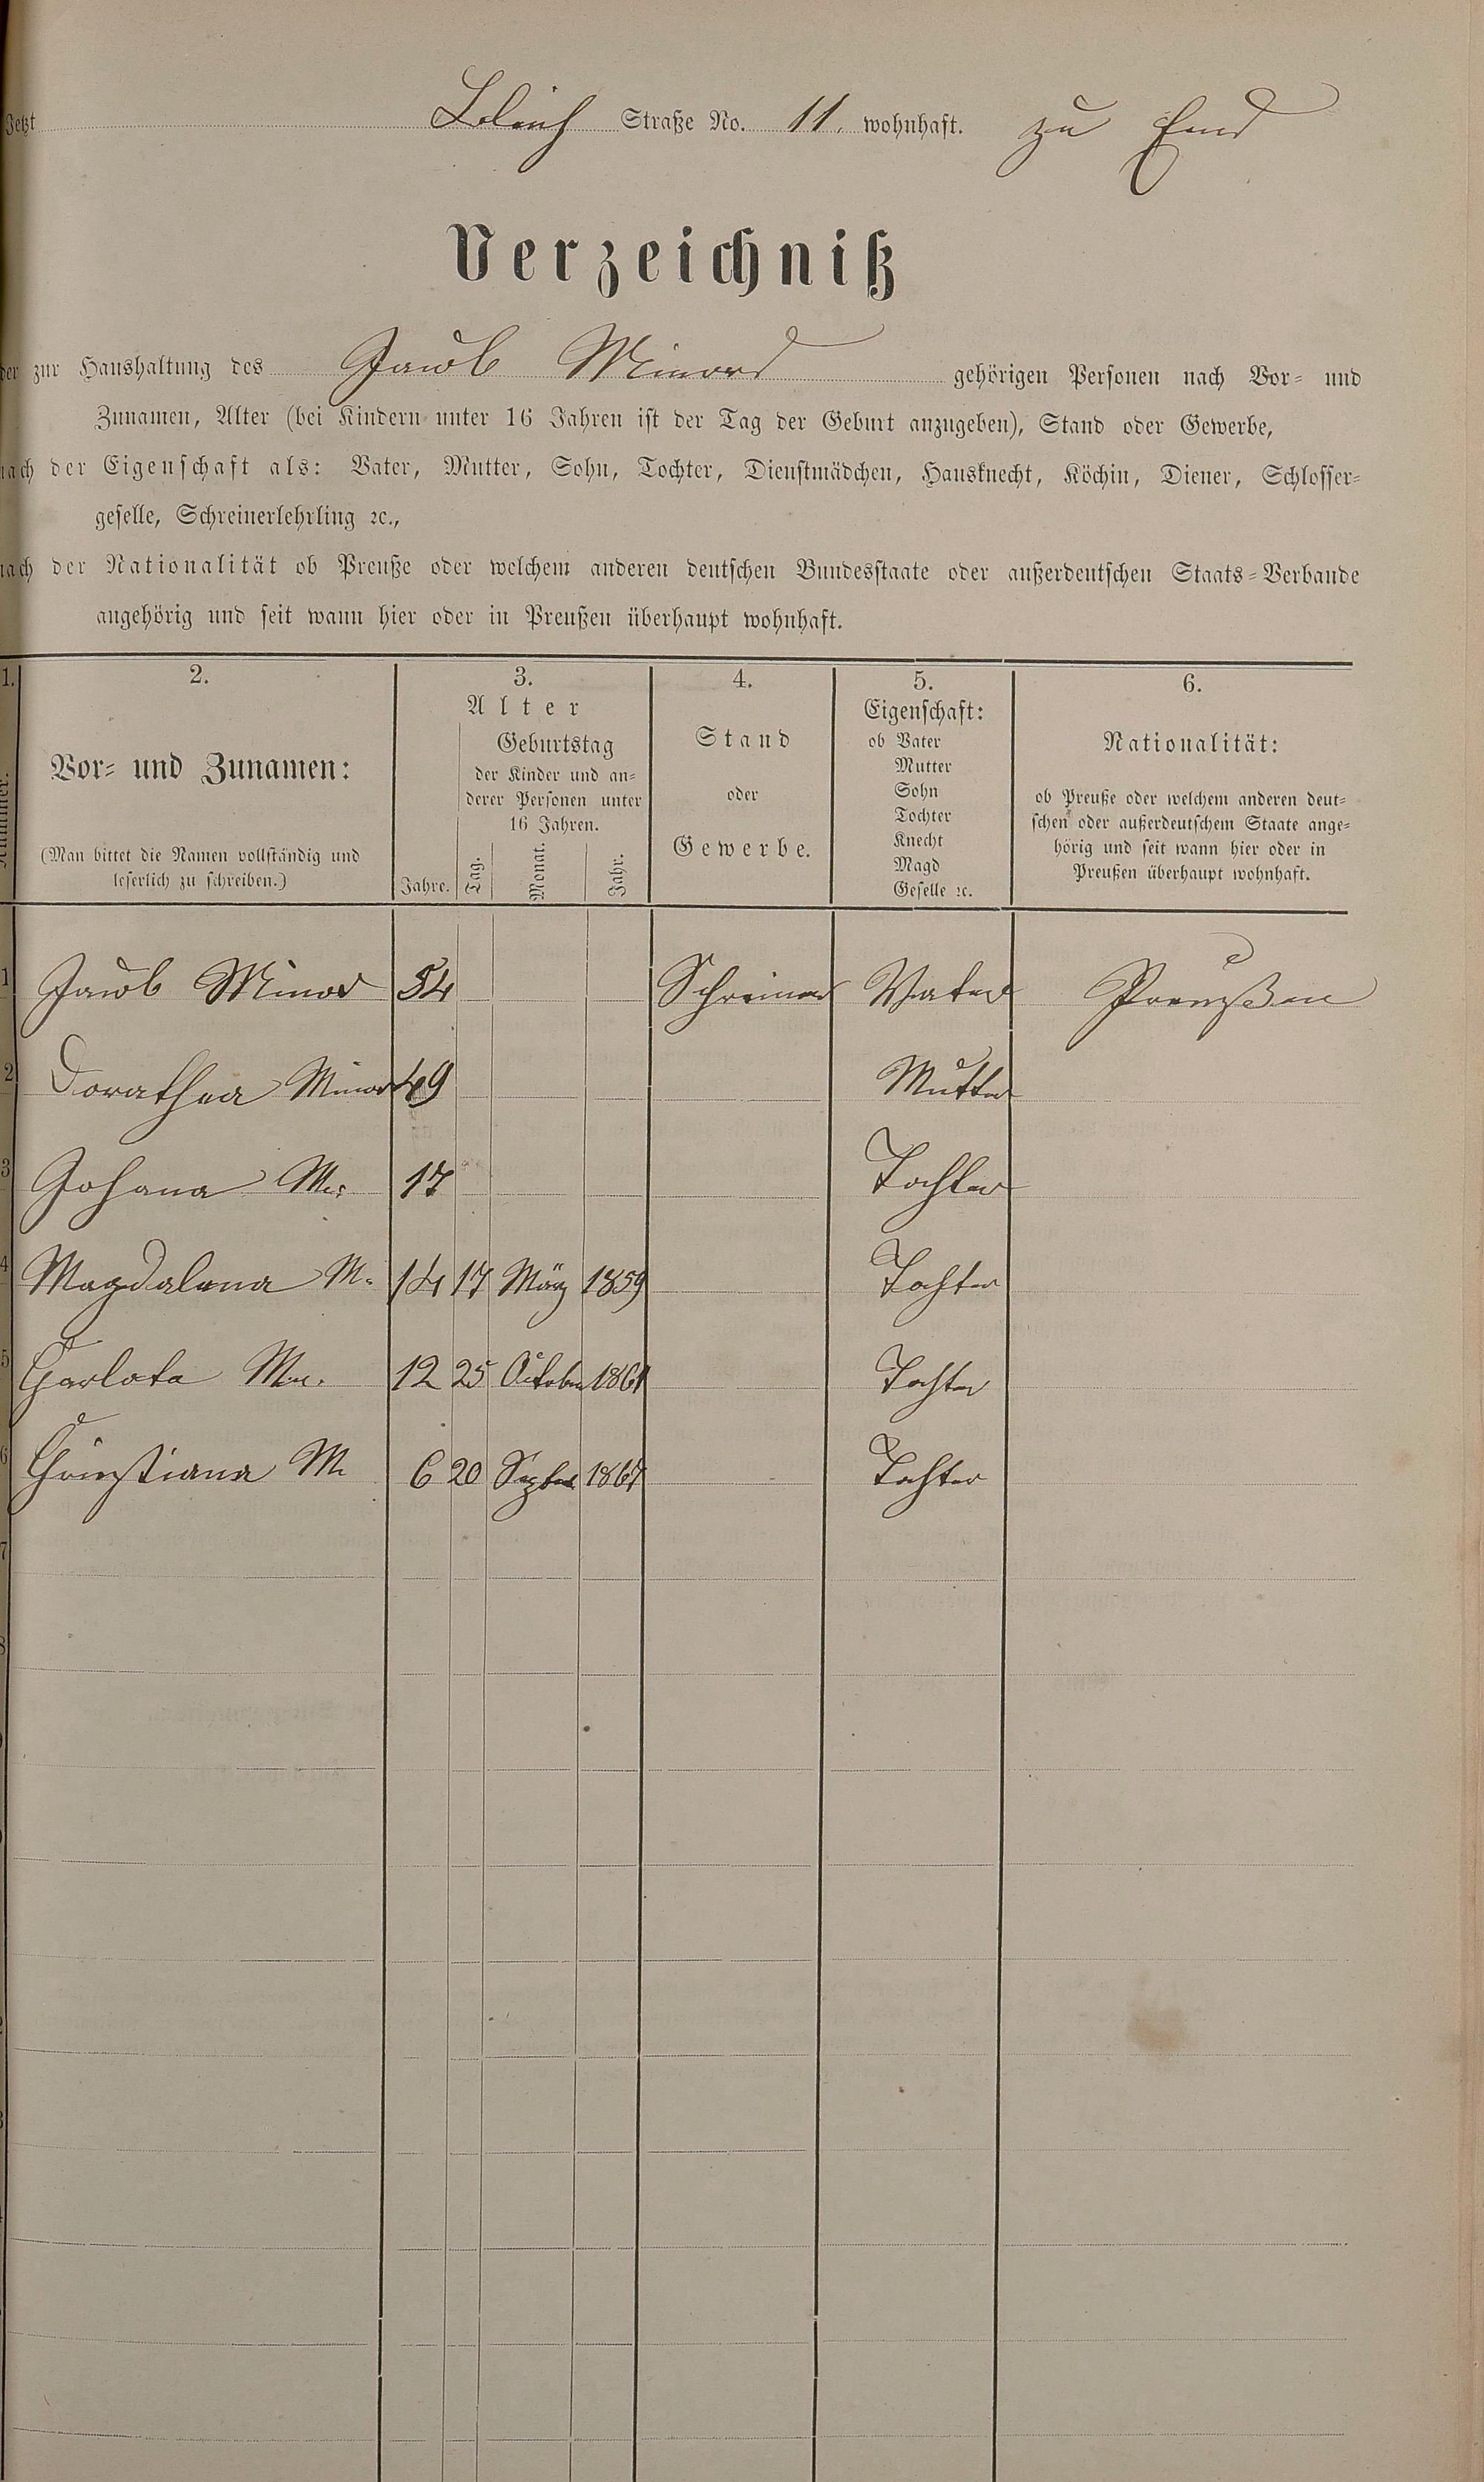 Jetzt Bleich Straße No. 11. wohnhaft. zu Ems
Verzeichniß
der zur Haushaltung des Jacob Minor gehörigen Personen nach Vor- und
Zunamen, Alter (bei Kindern unter 16 Jahren ist der Tag der Geburt anzugeben), Stand oder Gewerbe,
nach der Eigenschaft als: Vater, Mutter, Sohn, Tochter, Dienstmädchen, Hausknecht, Köchin, Diener, Schlosser-
geselle, Schreinerlehrling ꝛc.,
nach der Nationalität ob Preuße oder welchem anderen deutschen Bundesstaate oder außerdeutschen Staats-Verbande
angehörig und seit wann hier oder in Preußen überhaupt wohnhaft.
1. 2. 3. 4. 5. 6.
Nummer.
Vor- und Zunamen:
(Man bittet die Namen vollständig und
leserlich zu schreiben.)
Alter
Geburtstag
der Kinder und an-
derer Personen unter
16 Jahren.
Jahre. Tag. Monat. Jahr.
Stand
oder
Gewerbe.
Eigenschaft:
ob Vater
Mutter
Sohn
Tochter
Knecht
Magd
Geselle ꝛc.
Nationalität:
ob Preuße oder welchem anderen deut-
schen oder außerdeutschem Staate ange-
hörig und seit wann hier oder in
Preußen überhaupt wohnhaft.
1 Jacob Minor 54 Schreiner Vater Preußen
2 Dorathea Minor 49 Mutter
3 Johana M. 17 Tochter
4 Magdalena M. 14 17 März 1859 Tochter
5 Carlota M. 12 25 October 1861 Tochter
6 Christiana M 6 20 Septbr 1867 Tochter
7
8